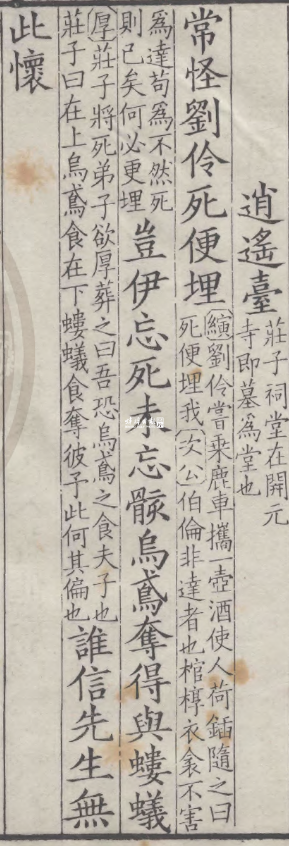 逍遙臺
莊子祠堂在開元
寺即墓爲堂也
常怪劉伶死便埋
縯劉伶嘗乘鹿車攜一壺酒使人荷鍤隨之曰
死便埋我次公伯倫非達者也棺椁衣衾不害
爲達苟爲不然死
則已矣何必更埋
豈伊忘死未忘骸烏鳶奪得與螻蟻
厚莊子將死弟子欲厚葬之曰吾恐烏鳶之食夫子也
莊子曰在上烏鳶食在下螻蟻食奪彼予此何其偏也
誰信先生無
此懷